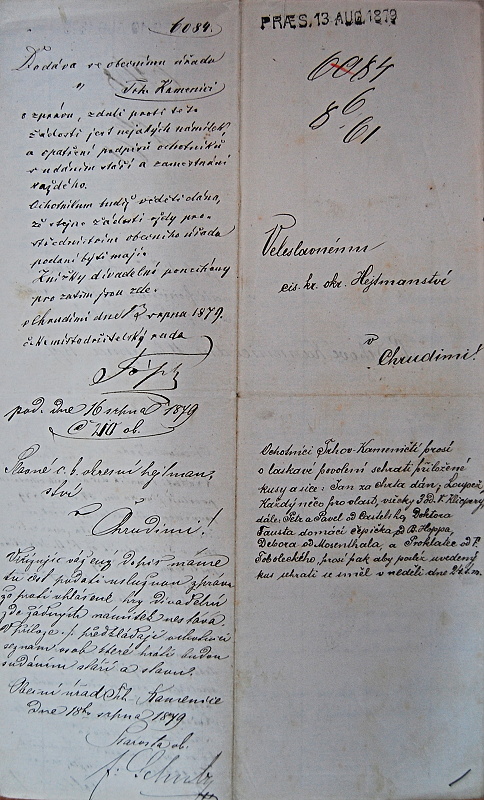 6084.
Dodáva se obecnímu úřadu
v
Trh. Kamenici
o zprávu, zdali proti této
žádosti jest nějakých námitek,
a opatření podpisů ochotníků
s udáním stáří a zaměstnání
každého.
Ochotníkům budiž věděti dáno,
že stejné žádosti vždy pro-
střednictvím obecního úřadu
podány býti mají.
Knížky divadelné ponechány
pro zatím jsou zde.
v Chrudimi dne 13 srpna 1879.
c. k. místodržitelský rada
pod. dne 16 srpna 1879
210 ob.
Slavné c. k. okresní hejtman-
ství
v
Chrudimi!
dopis máme
tu čest podati uslušnou zprávu
že proti hry divadelní
zde žádných námitek nestává
V příloze ·/. předkládají ochotníci
seznam osob které hráti budou
s udáním stáří a stavu.
Obecní úřad Trh. Kamenice
Dne 18ho srpna 1879
Starosta ob.
PRÆS. 13 AUG. 1879
6084
8 6
61
Veleslavnému
cís. kr. okr. Hejtmanství
v
Chrudimi!
Ochotníci Trhov-Kameničtí prosí
o laskavé povolení sehrati přiložené
kusy a sice: Pan za chrta dán, Loupež
Každý něco pro vlast, všeck. 3 od V. Klicpery,
dále: Petr a Pavel od Castelliho, Doktora
Fausta domácí čepička, od B. Hoppa,
Debora od Mosenthala, a Proklatec od F.
prosí pak aby posléz uvedený
kus sehrati se směl v neděli dne 24. t. m.